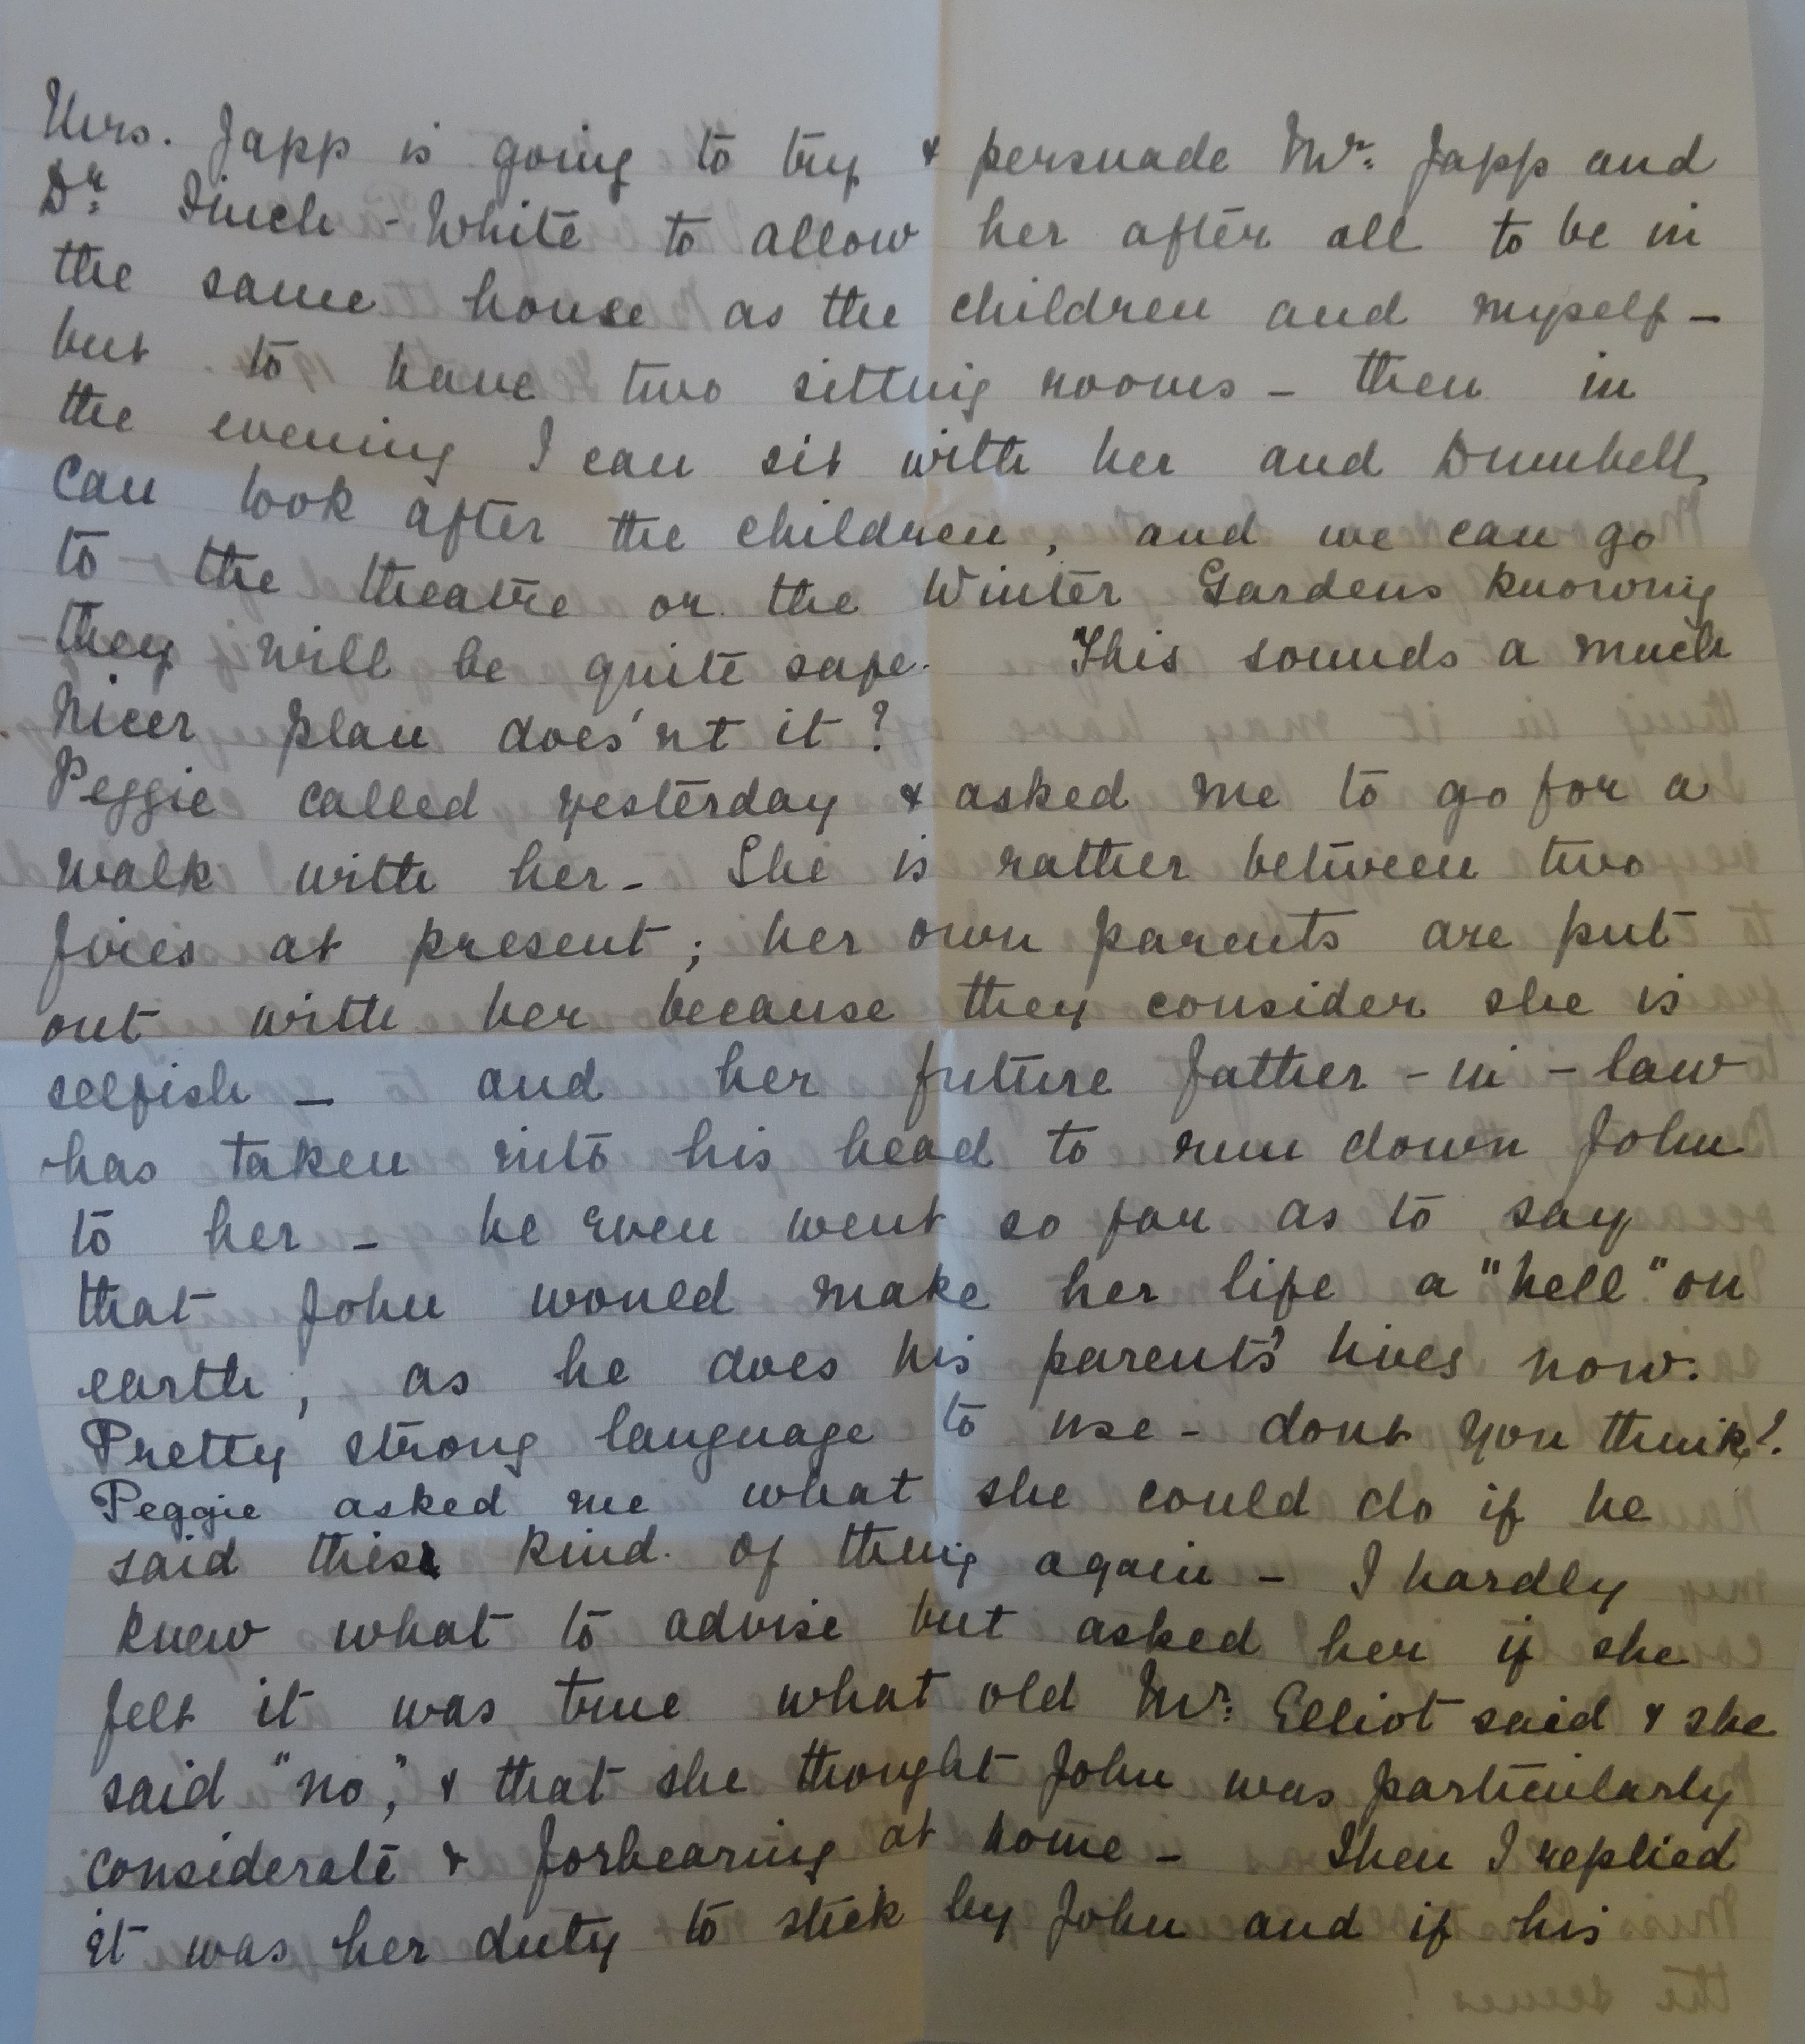 Mrs. Japp is going to try & persuade Mr. Japp and
Dr. Finch-White to allow her after all to be in
the same house as the children and myself -
but to have two sitting rooms - then in
the evening I can sit with her and Dumbell
can look after the children, and we can go
to the theatre or the Winter Gardens knowing
they will be quite safe. This sounds a much
nicer plan does'nt it?
Peggie called yesterday & asked me to go for a
walk with her - She is rather between two
fires at present; her own parents are put
out with her because they consider she is
selfish - and her future father-in-law
has taken into his head to run down John
to her - he even went so far as to say
that John would make her life a "hell" on
earth, as he does his parents' lives now.
Pretty strong language to use - dont you think?
Peggie asked me what she could do if he
said this kind of thing again - I hardly
knew what to advise but asked her if she
felt it was true what old Mr. Elliot said & she
said "no", & that she thought John was particularly
considerate & forbearing at home - Then I replied
it was her duty to stick by John and if his